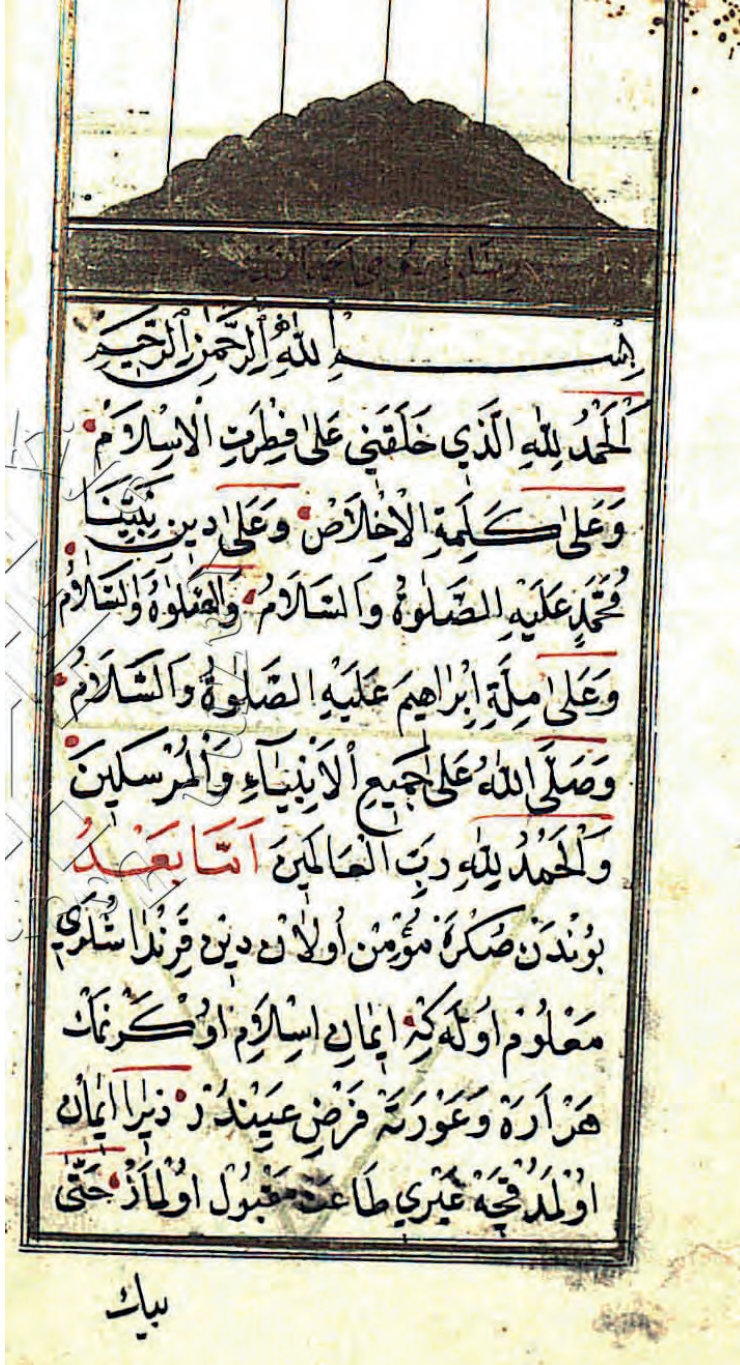 بِسْمِ اللهِ الرَّحْمٰنِ الرَّحِيمِ
اَلْحَمْدُ لِلّٰهِ الَّذِي خَلَقَنِي عَلٰى فِطْرَتِ الْاِسْلَامِ
وَعَلٰى كَلِمَةِ الْاِخْلَاصْ وَعَلٰى دِينِ نَبِيِّنَا
مُحَمَّدٍ عَلَيْهِ الصَّلٰوةُ وَالسَّلَامُ وَالصَّلٰوةُ وَالسَّلَامُ
وَعَلٰى مِلَّةِ اِبْرَاهِيمَ عَلَيْهِ الصَّلٰوةُ وَالسَّلَامُ
وَصَلَّى اللهُ عَلٰى جَمِيعِ الْاَنْبِيَآءِ وَالْمُرْسَلِينَ
وَالْحَمْدُ لِلّٰهِ رَبِّ الْعَالَمِينَ اَمَّا بَعْدُ
بُونْدَنْ صُكْرَهْ مُؤْمِنْ اُولَانْ دِينْ قَرِنْدَاشْلَرِي
مَعْلُومْ اُولَه كِه اِيمَانِ اِسْلَامِ اُوكْرَنْمَكْ
هَرْ اَرَهْ وَعَوْرَتَه فَرْضِ عَيِنْدُرْ زِيرَا اِيمَانْ
اُولْمَدُقْچَهْ غَيْرِي طَاعَتْ مَقْبُولْ اُولْمَازْ حَتّٰى
بيك